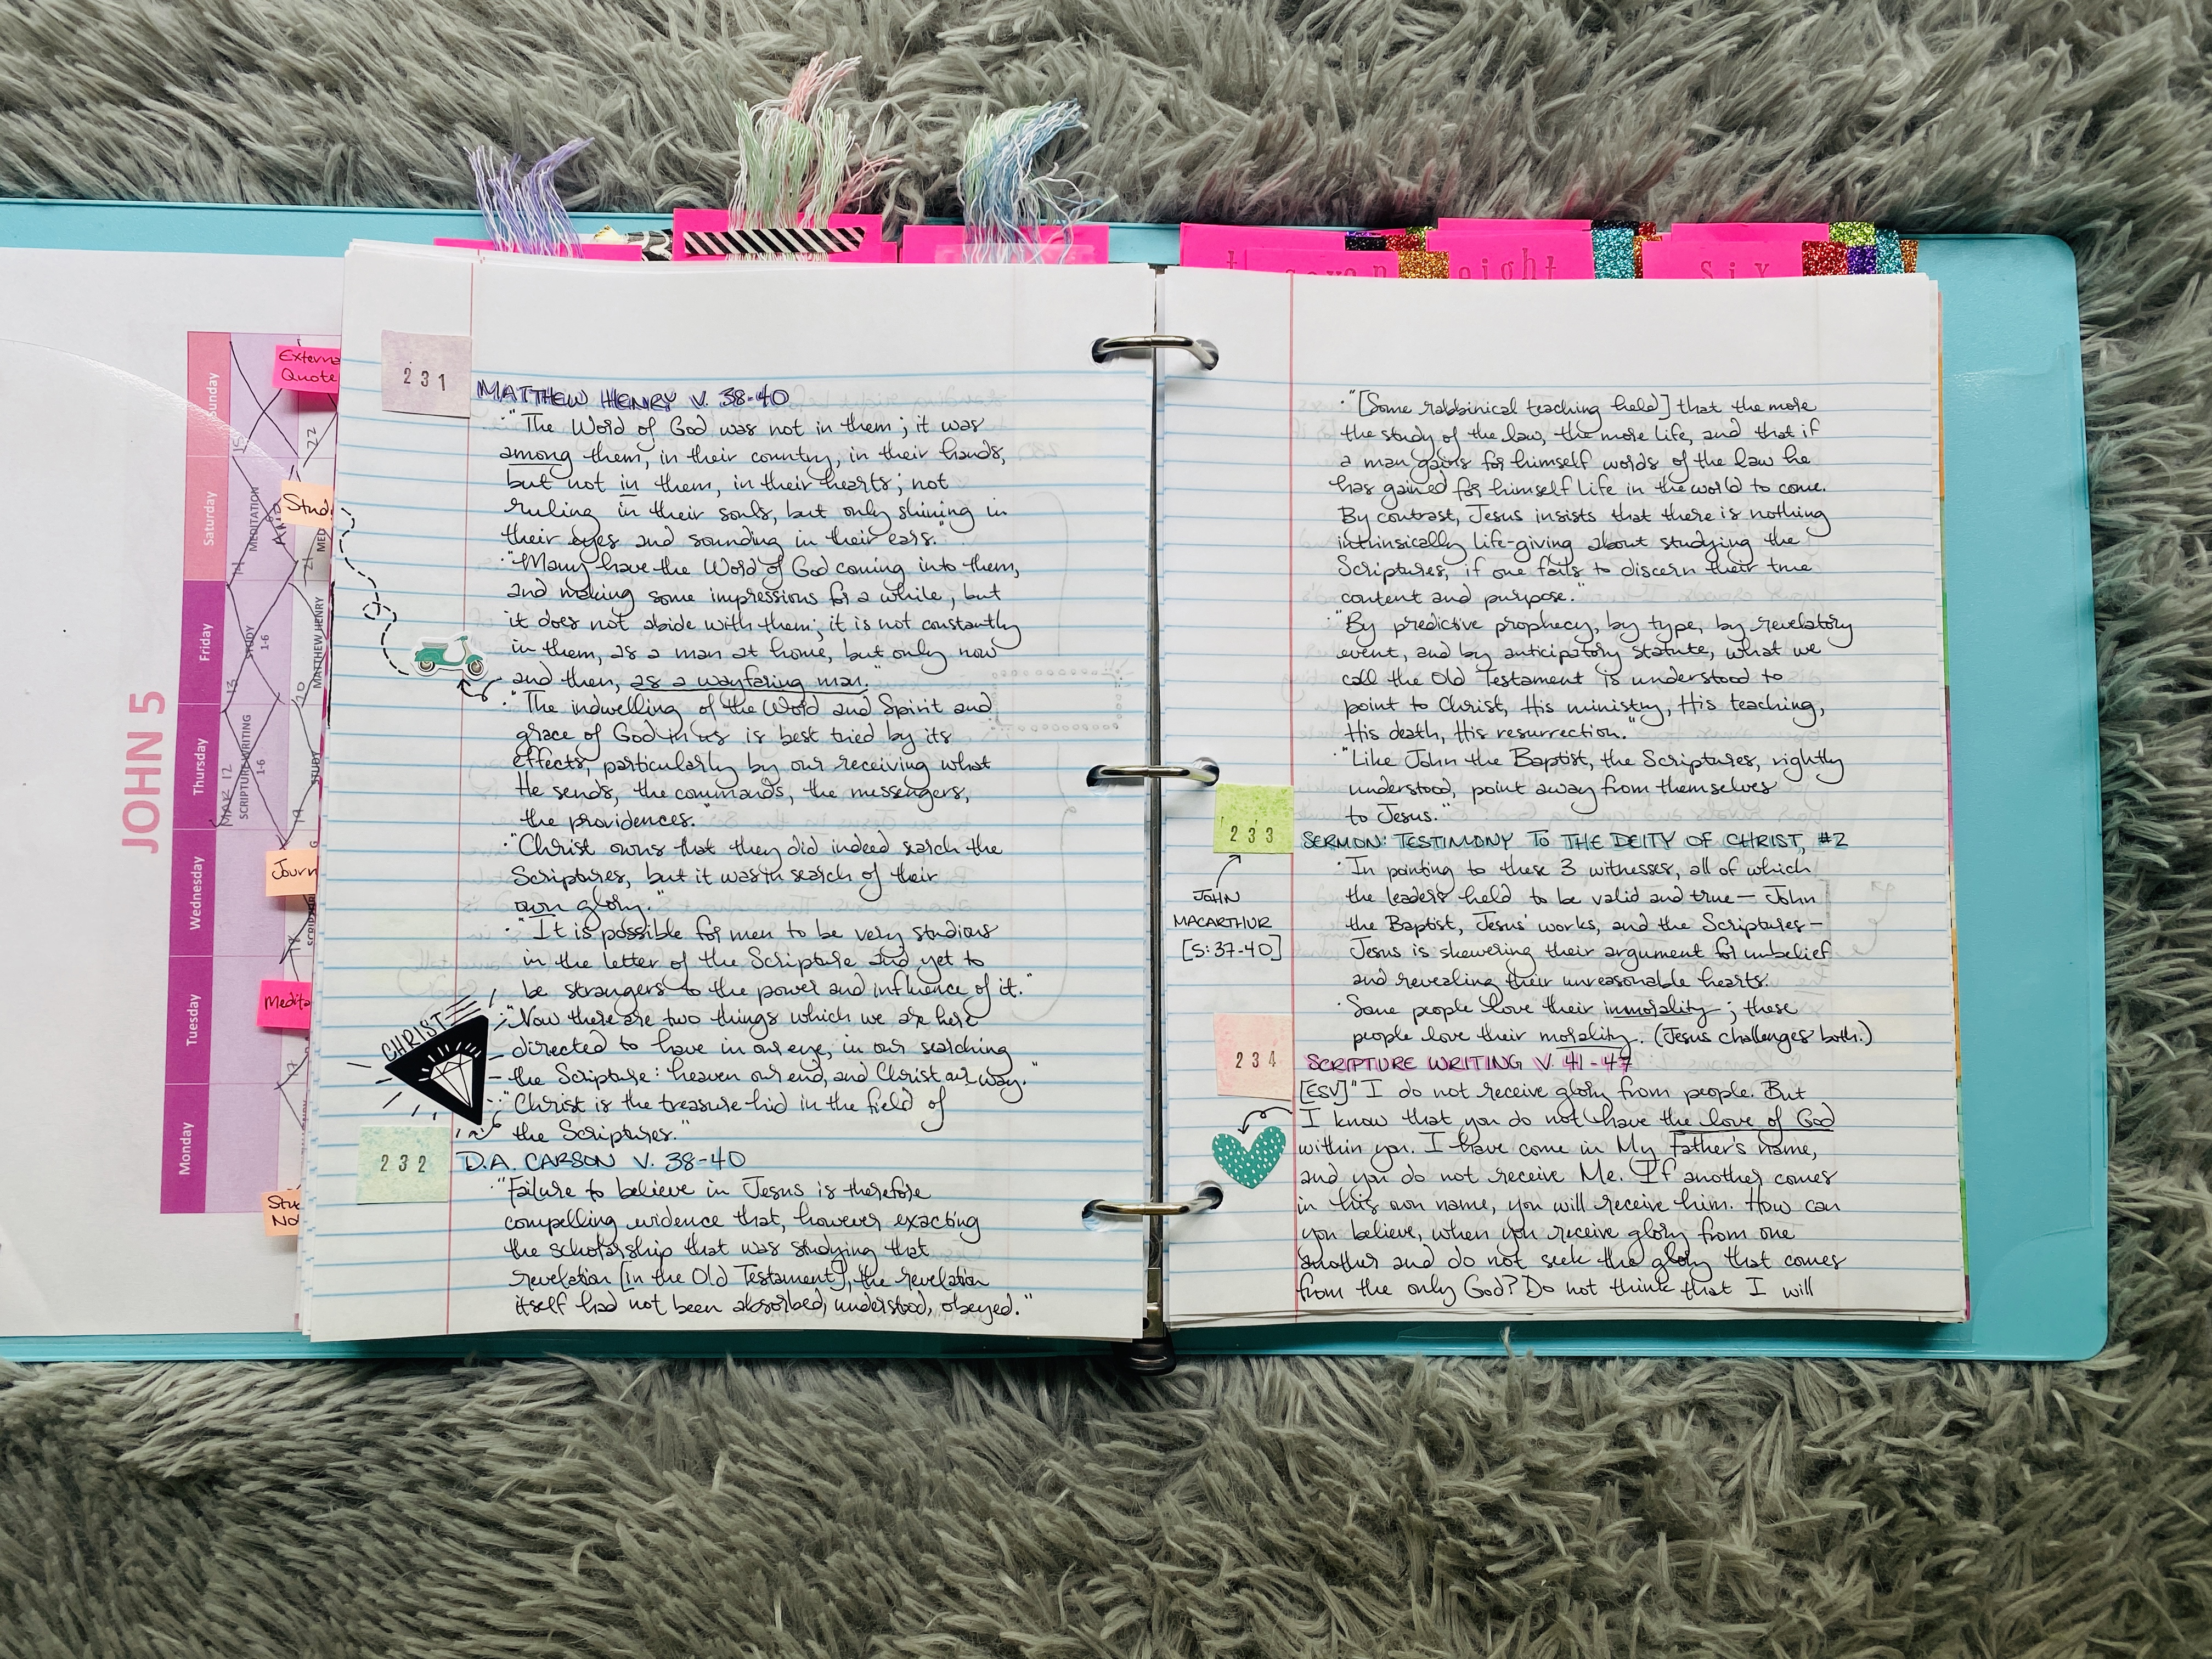 JOHN 5
Sunday
Saturday
Friday
Thursday
Wednesday
Tuesday
Monday
MEDITATION
STUDY
1-6
MAR 12
SCRIPTURE WRITING
1-6
MATTHEW HENRY
STUDY
Externa
Quote
Stud
Journ
Medita
Stu
No
seven
eight
six
231
MATTHEW HENRY V. 38-40
· "The Word of God was not in them; it was
among them, in their country, in their hands,
but not in them, in their hearts; not
ruling in their souls, but only shining in
their eyes and sounding in their ears."
· "Many have the Word of God coming into them,
and making some impressions for a while, but
it does not abide with them; it is not constantly
in them, as a man at home, but only now
and then, as a wayfaring man."
· "The indwelling of the Word and Spirit and
grace of God in us is best tried by its
effects, particularly by our receiving what
He sends, the commands, the messengers,
the providences."
· "Christ owns that they did indeed search the
Scriptures, but it was in search of their
own glory."
· "It is possible for men to be very studious
in the letter of the Scripture and yet to
be strangers to the power and influence of it."
· "Now there are two things which we are here
directed to have in our eye, in our searching
the Scripture: heaven our end, and Christ our way."
· "Christ is the treasure hid in the field of
the Scriptures."
CHRIST
232
D.A. CARSON V. 38-40
· "Failure to believe in Jesus is therefore
compelling evidence that, however exacting
the scholarship that was studying that
revelation [in the Old Testament], the revelation
itself had not been absorbed, understood, obeyed."
· "[Some rabbinical teaching held] that the more
the study of the law, the more life, and that if
a man gains for himself words of the law he
has gained for himself life in the world to come.
By contrast, Jesus insists that there is nothing
intrinsically life-giving about studying the
Scriptures, if one fails to discern their true
content and purpose."
· "By predictive prophecy, by type, by revelatory
event, and by anticipatory statute, what we
call the Old Testament is understood to
point to Christ, His ministry, His teaching,
His death, His resurrection."
· "Like John the Baptist, the Scriptures, rightly
understood, point away from themselves
to Jesus."
233
SERMON: TESTIMONY TO THE DEITY OF CHRIST, #2
JOHN
MACARTHUR
[5:37-40]
· In pointing to these 3 witnesses, all of which
the leaders held to be valid and true — John
the Baptist, Jesus' works, and the Scriptures —
Jesus is skewering their argument for unbelief
and revealing their unreasonable hearts.
· Some people love their immorality; these
people love their morality. (Jesus challenges both.)
234
SCRIPTURE WRITING V. 41-47
[ESV] "I do not receive glory from people. But
I know that you do not have the love of God
within you. I have come in My Father's name,
and you do not receive Me. If another comes
in his own name, you will receive him. How can
you believe, when you receive glory from one
another and do not seek the glory that comes
from the only God? Do not think that I will